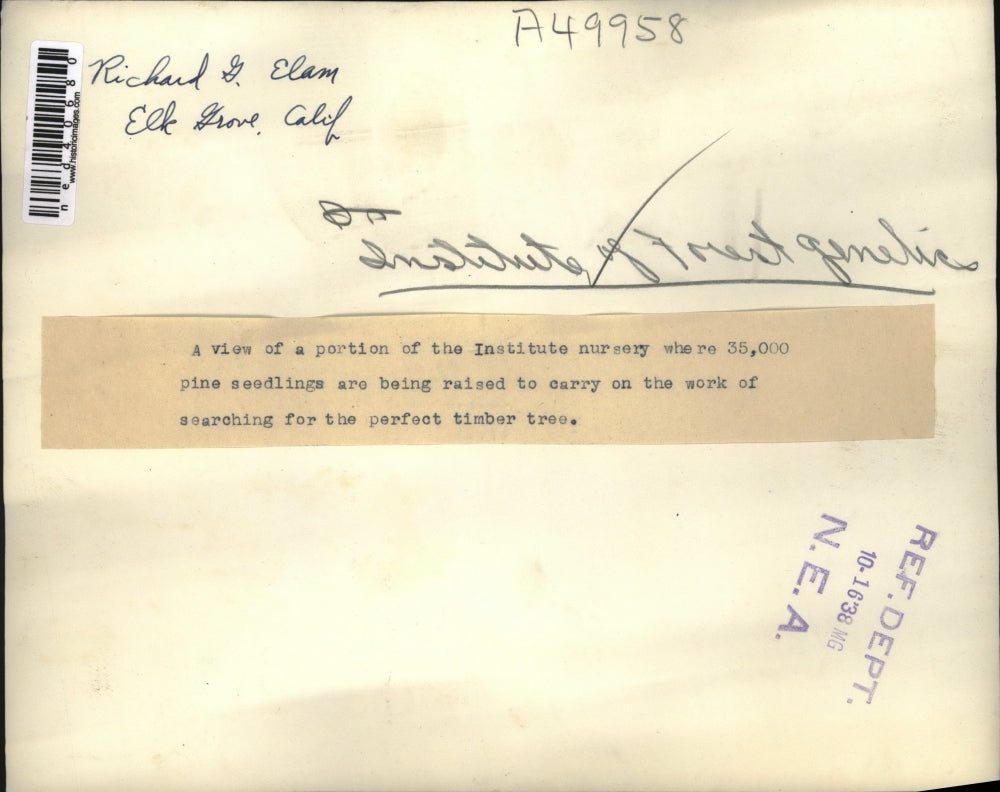 A49958
Richard G. Elam
Elk Grove, Calif
www.historicimages.com
ned40680
Institute of Forest genetics
A view of a portion of the Institute nursery where 35,000
pine seedlings are being raised to carry on the work of
searching for the perfect timber tree.
REF. DEPT.
10-16'38 MG
N.E.A.